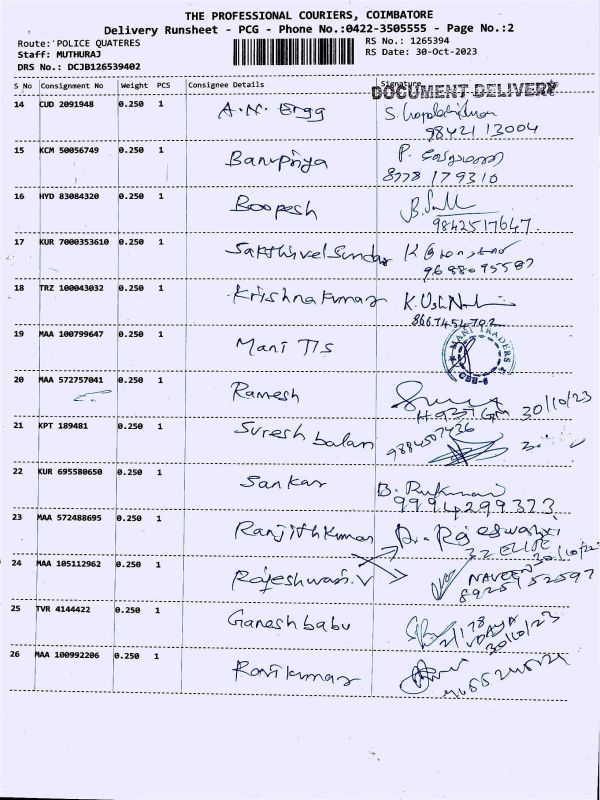 THE PROFESSIONAL COURIERS, COIMBATORE
Delivery Runsheet - PCG - Phone No.:0422-3505555 - Page No.:2
Route: POLICE QUATERES RS No.: 1265394
Staff: MUTHURAJ RS Date: 30-Oct-2023
DRS No.: DCJB126539402
S No Consignment No Weight PCS Consignee Details Signature
DOCUMENT DELIVERY
14 CUD 2091948 0.250 1
98421 13004
15 KCM 50056749 0.250 1 Banupriya P.
8778 179310
16 HYD 83084320 0.250 1 Boopesh
9842517647.
17 KUR 7000353610 0.250 1 Sakthivel Sundar K
9688095587
18 TRZ 100043032 0.250 1 Krishnakumar
8667454702
19 MAA 100799647 0.250 1 Mani T/s
MANI TRADERS
CBE-6
20 MAA 572757041 0.250 1 Ramesh
30/10/23
21 KPT 189481 0.250 1 Suresh balan 9884507436
22 KUR 695580650 0.250 1 Sankar B. Rukmani
9994299373
23 MAA 572488695 0.250 1 Ranjithkumar Rajeswari
32 ELITE
24 MAA 105112962 0.250 1 Rajeshwari.V NAVEEN
8925152597
25 TVR 4144422 0.250 1 Ganeshbabu
30/10/23
26 MAA 100992206 0.250 1 Ravikumar